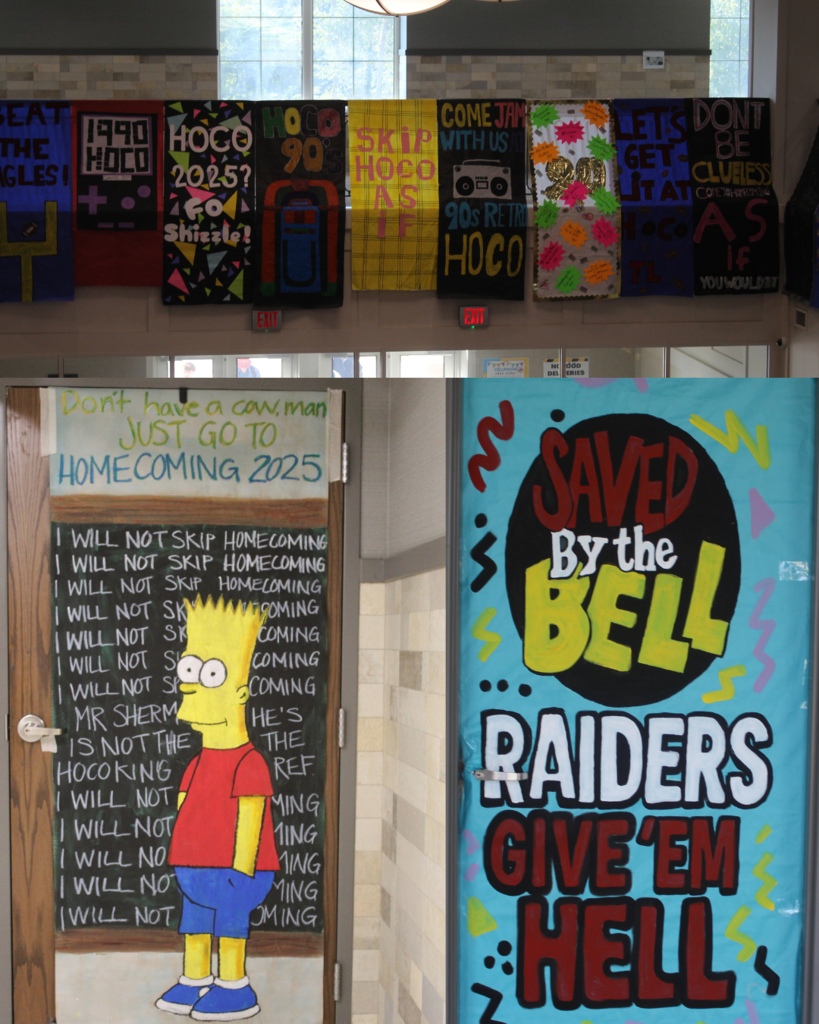 BEAT
THE
EAGLES!
1990
HOCO
HOCO
2025?
Fo
Shizzle!
HOCO
90'S
SKIP
HOCO
AS
IF
COME JAM
WITH US AT
90s RETRO
HOCO
90s
LET'S
GET
LIT AT
HOCO
DON'T
BE
CLUELESS
AS
if
YOU WOULDN'T
EXIT
EXIT
NO FOOD
DELIVERIES
Don't have a cow, man
JUST GO TO
HOMECOMING 2025
I WILL NOT SKIP HOMECOMING
I WILL NOT SKIP HOMECOMING
I WILL NOT SKIP HOMECOMING
I WILL NOT SK OMING
I WILL NOT SK COMING
I WILL NOT SK COMING
I WILL NOT SK COMING
MR SHERM HE'S
IS NOT THE THE
HOCO KING REF
I WILL NOT MING
I WILL NOT MING
I WILL NO MING
I WILL NOT MING
I WILL NOT OMING
SAVED
By the
BELL
RAIDERS
GIVE 'EM
HELL